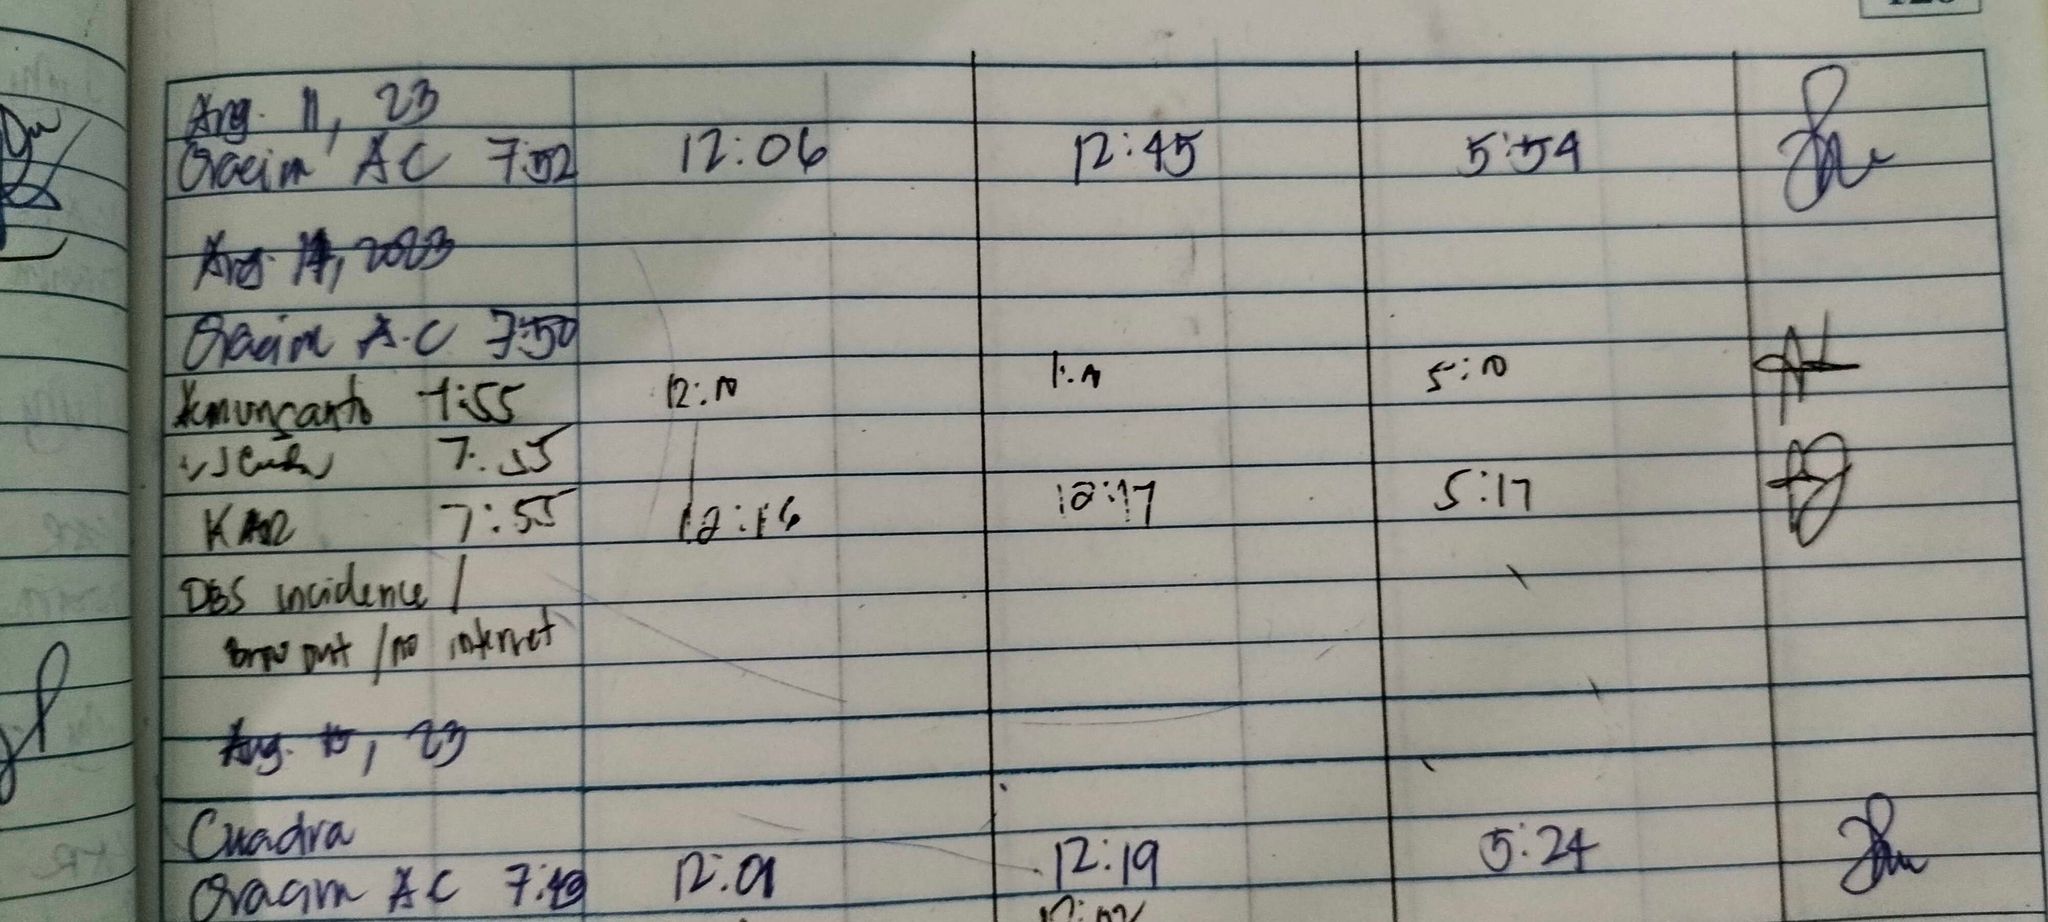 Aug. 11, 23
Oracim AC 7:52 12:06 12:45 5:54
Aug. 14, 2023
Oracim A.C 7:50
7:55 12:10 1:10 5:10
7:55
KAR 7:55 12:16 12:17 5:17
DBS incidence /
brown out / no internet
Aug. 15, 23
Cuadra
Oracim AC 7:49 12:01 12:19 5:24